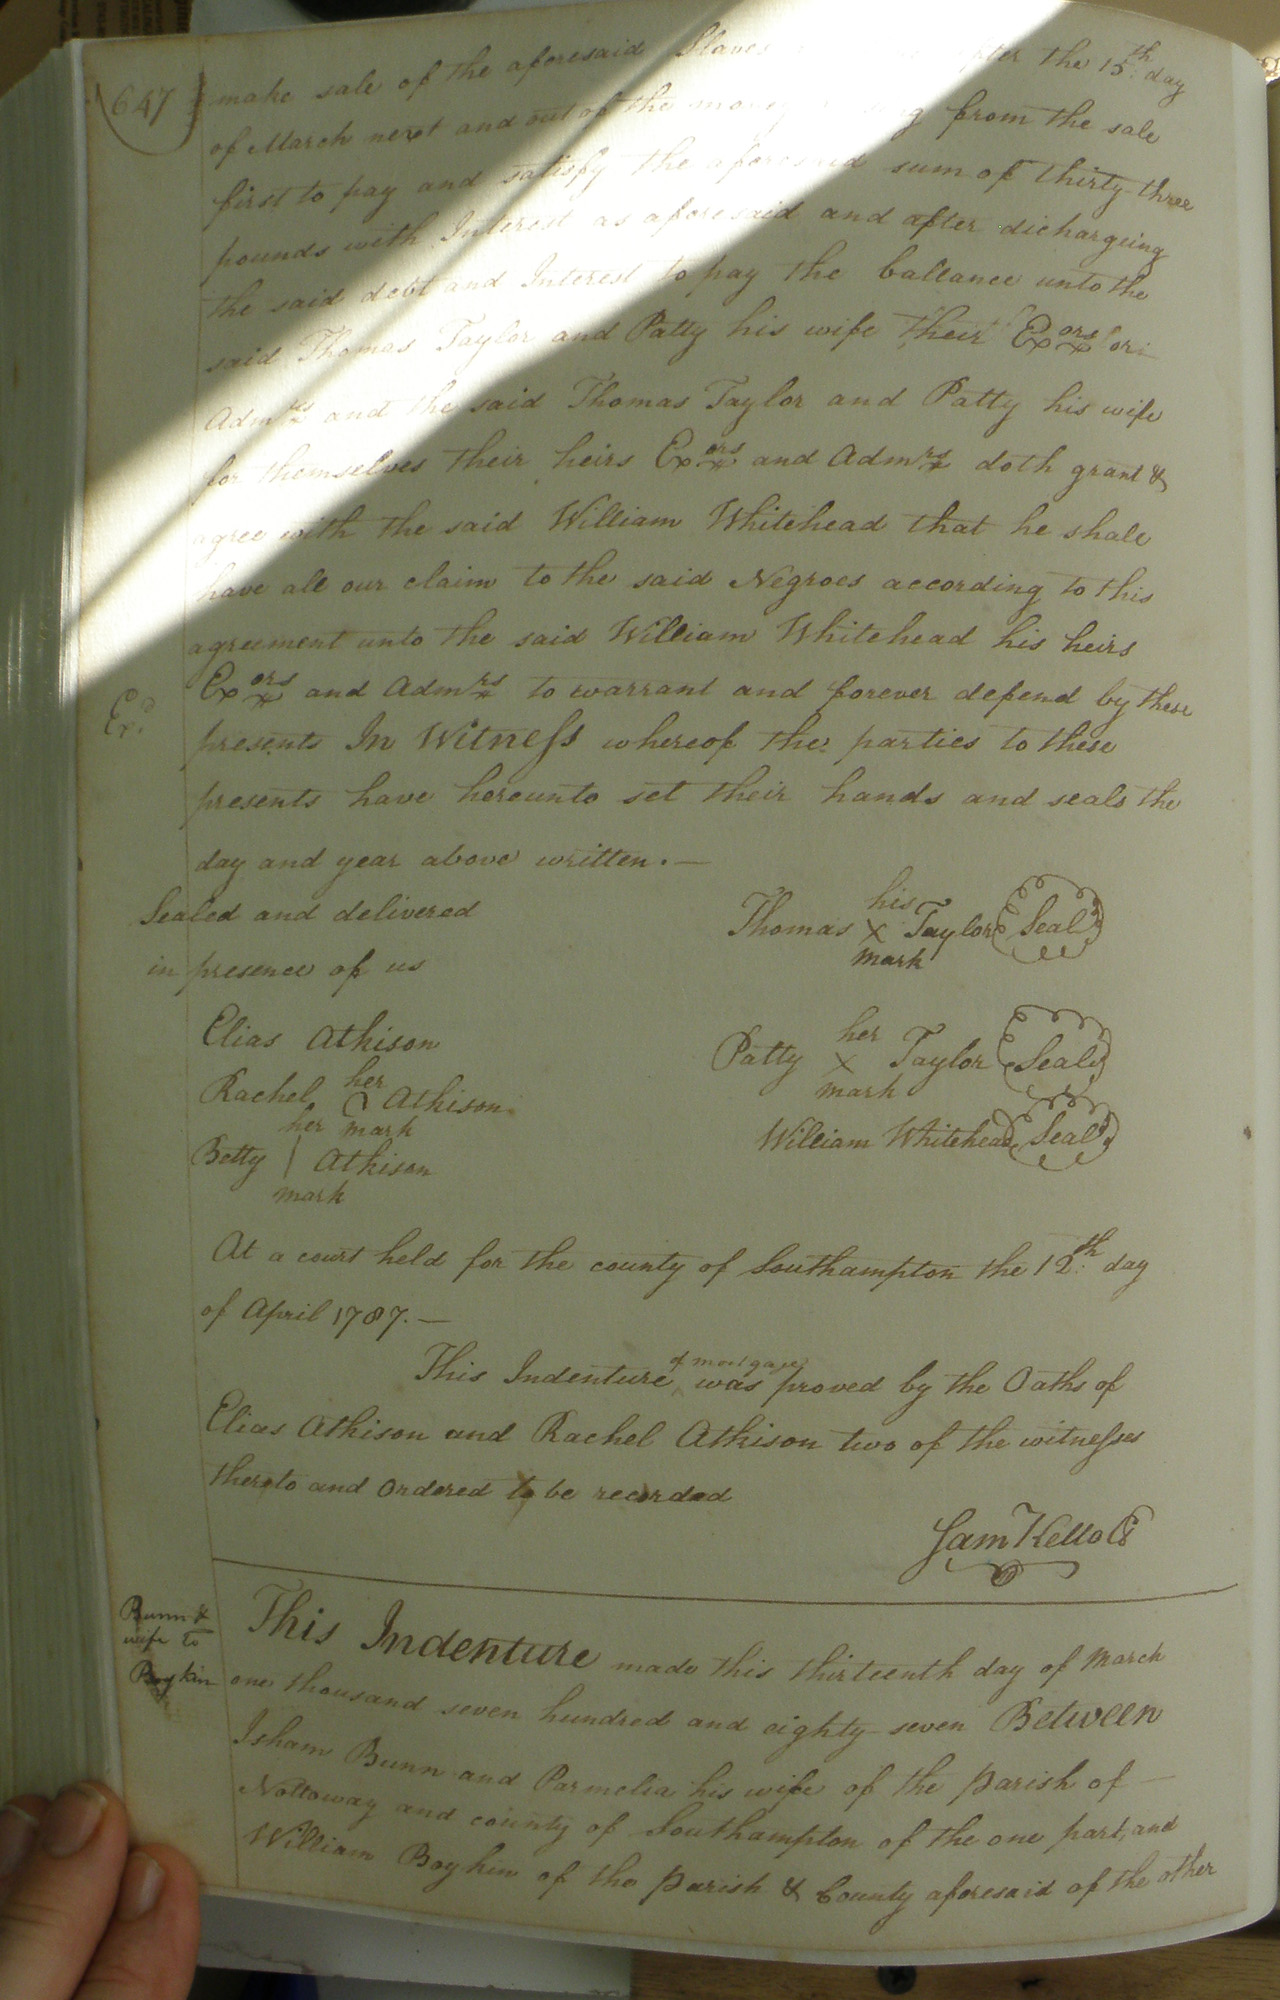 647
make sale of the aforesaid Slaves after the 15th day
of March next and out of the money from the sale
first to pay and satisfy the aforesaid sum of thirty three
pounds with Interest as aforesaid and after dichargeing
the said debt and Interest to pay the ballance unto the
said Thomas Taylor and Patty his wife their Exors or
Admrs and the said Thomas Taylor and Patty his wife
for themselves their heirs Exors and Admrs doth grant &
agree with the said William Whitehead that he shall
have all our claim to the said Negroes according to this
agreement unto the said William Whitehead his heirs
Exors and Admrs to warrant and forever defend by these
Exd.
presents In Witness whereof the parties to these
presents have hereunto set their hands and seals the
day and year above written.—
Sealed and delivered
in presence of us
Thomas his X mark Taylor Seal
Elias Atkison
Patty her X mark Taylor Seal
Rachel her mark Atkison
William Whitehead Seal
Betty her | mark Atkison
At a court held for the county of Southampton the 12th day
of April 1787.—
This Indenture of mortgage was proved by the Oaths of
Elias Atkison and Rachel Atkison two of the witnesses
thereto and ordered to be recorded
Sam Kello C
Bunn &
wife to
Boykin
This Indenture made this thirteenth day of March
one thousand seven hundred and eighty seven Between
Isham Bunn and Parmelia his wife of the Parish of —
Nottoway and county of Southampton of the one part, and
William Boykin of the Parish & County aforesaid of the other